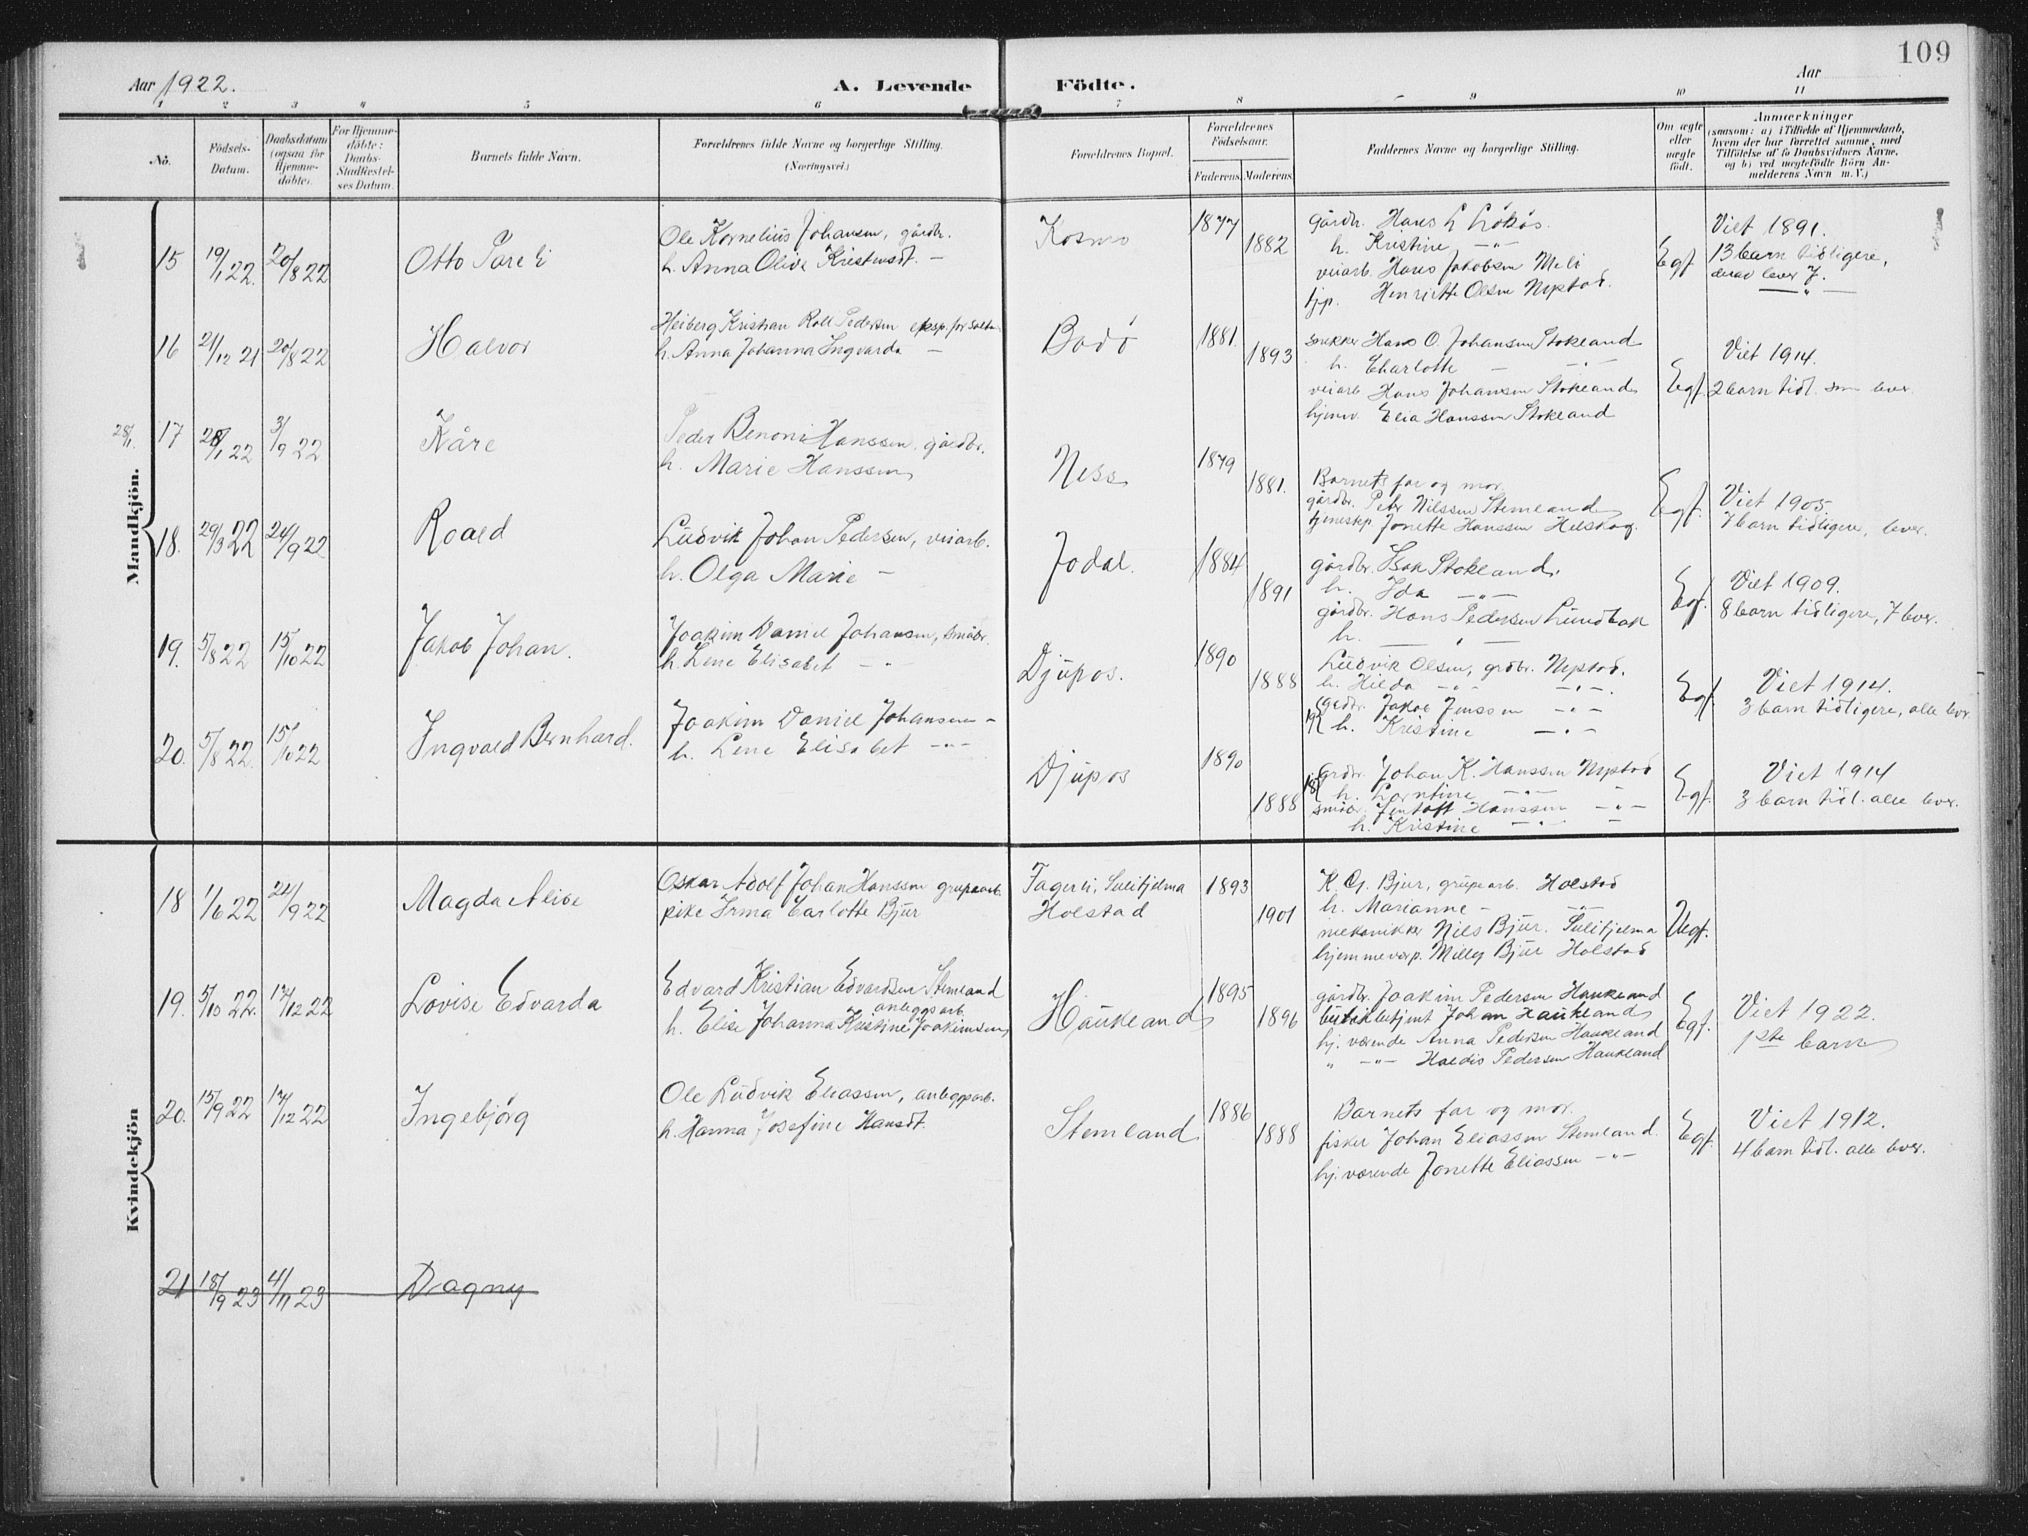 109
Aar 1922. A. Levende Födte. Aar
1 2 3 4 5 6 7 8 9 10 11
No.
Födsels-Datum.
Daabsdatum (ogsaa for Hjemme-döbte).
For Hjemme-döbte: Daabs-Stadfæstel-ses Datum.
Barnets fulde Navn.
Forældrenes fulde Navne og borgerlige Stilling. (Næringsvei.)
Forældrenes Bopæl.
Forældrenes Födselsaar.
Faderens. Moderens.
Faddernes Navne og borgerlige Stilling.
Om ægte eller uægte født.
Anmærkninger
(saasom: a) i Tilfælde af Hjemmedaab,
hvem der har forrettet samme, med
Tilföielse af to Daabsvidners Navne,
og b) ved uægtefödte Börn An-
melderens Navn m. V.)
Mandkjön.
15 19/1 22. 20/8 22 Otto Pareli
Ole Kornelius Johansen, gårdbr.
h. Anna Olive Kristensdt. —
Kosmo 1877 1882
gårdbr. Hans L Løkås.
h. Kristine —"—
veiarb. Hans Jakobsen Melö
tjp. Henriette Olsen Nystad.
Egf
Viet 1891.
13 barn tidligere,
derav lever 7.
—"—
16 21/12 21 20/8 22 Halvor
Heiberg Kristian Roll Pedersen eksp. for Salten
h. Anna Johanna Ingvarda —
Bodö 1881. 1893
snekker Hans O. Johansen Stokland
h. Charlotte — "—
veiarb. Hans Johansen Stokland
hjemv. Elia Hanssen Stokland
Egf.
Viet 1914.
2 barn tidl. som lever.
28/1.
17 28/1 22 3/9 22 Kåre
Peder Benoni Hanssen, gårdbr.
h. Marie Hanssen
Ness 1879 1881.
Barnets far og mor.
gårdbr. Petr Nilssen Stemland
tjenestep. Jonette Hanssen Helskog.
Egf.
Viet 1905.
7 barn tidligere, lever.
18. 29/3 22 24/9 22 Roald
Ludvik Johan Pedersen, veiarb.
h. Olga Marie —
Jodal. 1884 1891
gårdbr. Isak Stokland.
h. Ida —"—
gårdbr. Hans Pedersen Lundbak
h. — " —
Egf.
Viet 1909.
8 barn tidligere, 7 lever.
19. 5/8 22 15/10 22 Jakob Johan.
Joakim Daniel Johansen, småbr.
h. Lene Elisabet —"—
Djupos. 1890 1888
Ludvik Olsen, grdbr. Nystad.
h. Hilda —"— —"—.
grdbr. Jakob Jenssen —"—
h. Kristine —"—
Egf
Viet 1914.
3 barn tidligere, alle lever.
20. 5/8 22. 15/10 22 Ingvald Bernhard.
Joakim Daniel Johansen —
h. Lene Elisabet —"—
Djupos 1890 1888
grdbr. Johan K. Hanssen Nystad
h. Lorntine —"—
småbr. Jentoft Hanssen —"—
h. Kristine —"— —
Egf.
Viet 1914
3 barn tidl. alle lever.
Kvindekjön
18 1/6 22 24/9 22 Magda Alise
Oskar Adolf Johan Hanssen grupearb.
pike Irma Carlotte Bjur
Fagerli, Sulitjelma
Holstad
1893 1901
K. G. Bjur, grupearb. Holstad
h. Marianne — —"—
mekanikker Nils Bjur. Sulitjelma
hjemmevp. Milly Bjur Holstad
Uegf.
19. 5/10 22. 17/12 22 Lovise Edvarda
Edvard Kristian Edvardsen Stemland
anleggsarb.
h. Elise Johanna Kristine Joakimsen
Haukland 1895 1896
gårdbr. Joakim Pedersen Haukland
butikbetjent Johan Haukland
hj. værende Anna Pedersen Haukland
" —"— Haldis Pedersen Haukland
Egf.
Viet 1922.
1ste barn
20. 15/9 22 17/12 22 Ingebjörg
Ole Ludvik Eliassen, anleggsarb.
h. Hanna Josefine Hansdt.
Stemland 1886 1888
Barnets far og mor.
fisker Johan Eliassen Stemland.
hj. værende Jonette Eliassen —"—
Egf.
Viet 1912.
4 barn tidl. alle lever.
21 18/9 23 4/11 23 Dagny